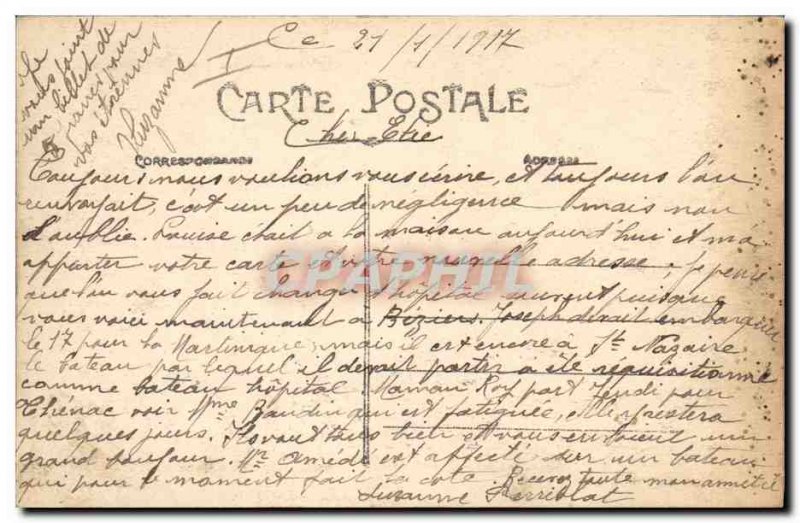 Ce 21/1/1917
Je
vous joint
un billet de
5 francs pour
vos étrennes
Suzanne
CARTE POSTALE
Cher Elie
CORRESPONDANCE
ADRESSE
Toujours nous voulions vous écrire, et toujours l'on
renvoyait, c'est un peu de négligence mais non
d'oublie. Louise était a la maison aujourd'hui et m'a
apporter votre carte et votre nouvelle adresse, je pense
que l'on vous fait changer d'hopital souvent puisque
vous voici maintenant a Béziers. Joseph devait embarquer
le 17 pour la Martinique, mais il est encore a St Nazaire
le bateau par lequel il devait partir a été réquisitionné
comme bateau hôpital. Maman Roy part Jeudi pour
Thénac voir Mme Baudin qui est fatiguée, elle y restera
quelques jours. Ils vont tous bien et vous envoient un
grand bonjour. Mr Amédé est affecté sur un bateau
qui pour le moment fait la cote. Recevez toute mon amitié
Suzanne
CPAPHIL